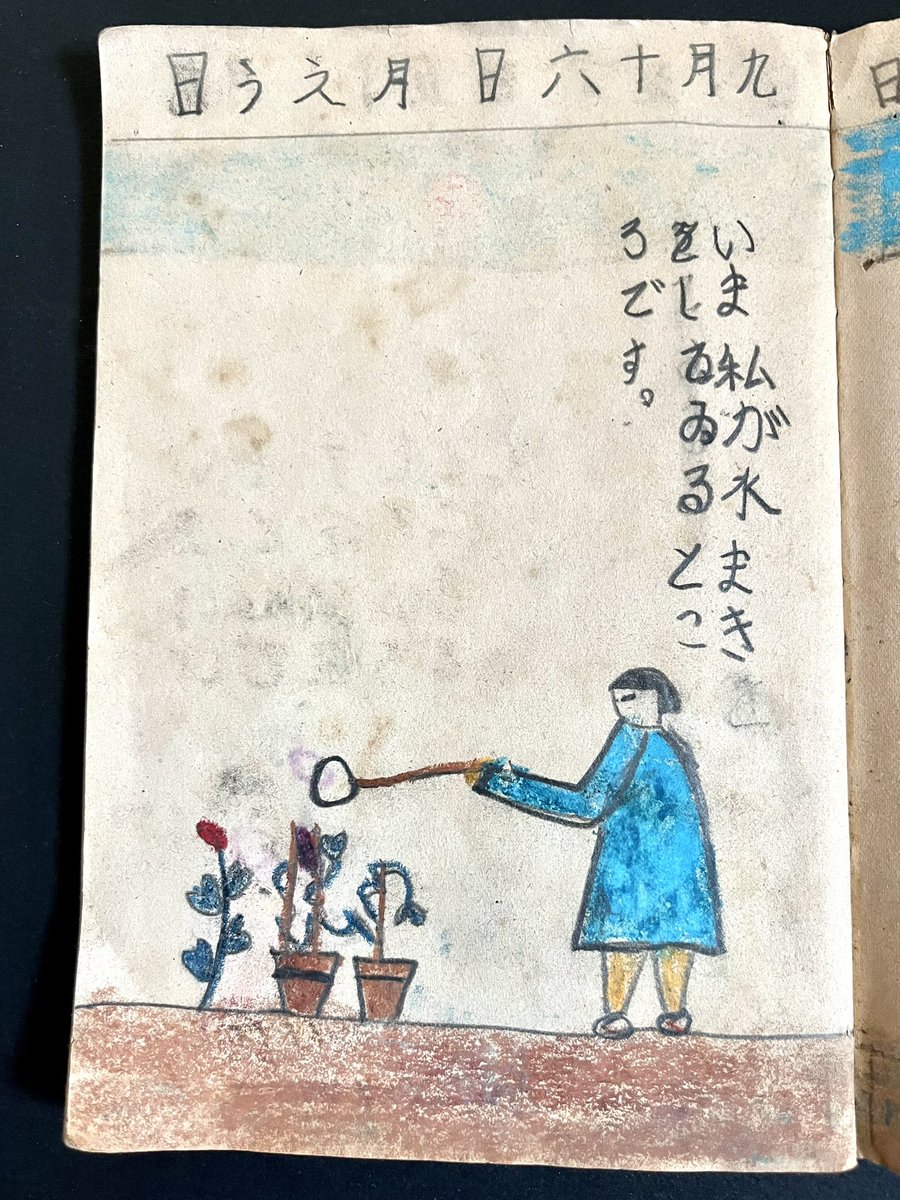 九月十六日 月えう日
いま 私が水まき
をしてゐるとこ
ろです。
日